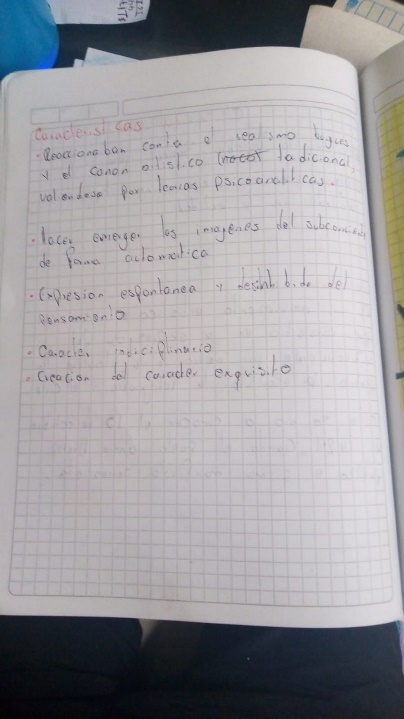 Caracteristicas
• Reaccionaban conta el realismo bugues
y el canon artistico tadicional,
valendose por tecnicas psicoanaliticas.
• hacer emerger las imagenes del subconciente
de forma automatica
• Expresion espontanea y desinhibida del
pensamiento
• Caracter
• Creacion del caracter exquisito